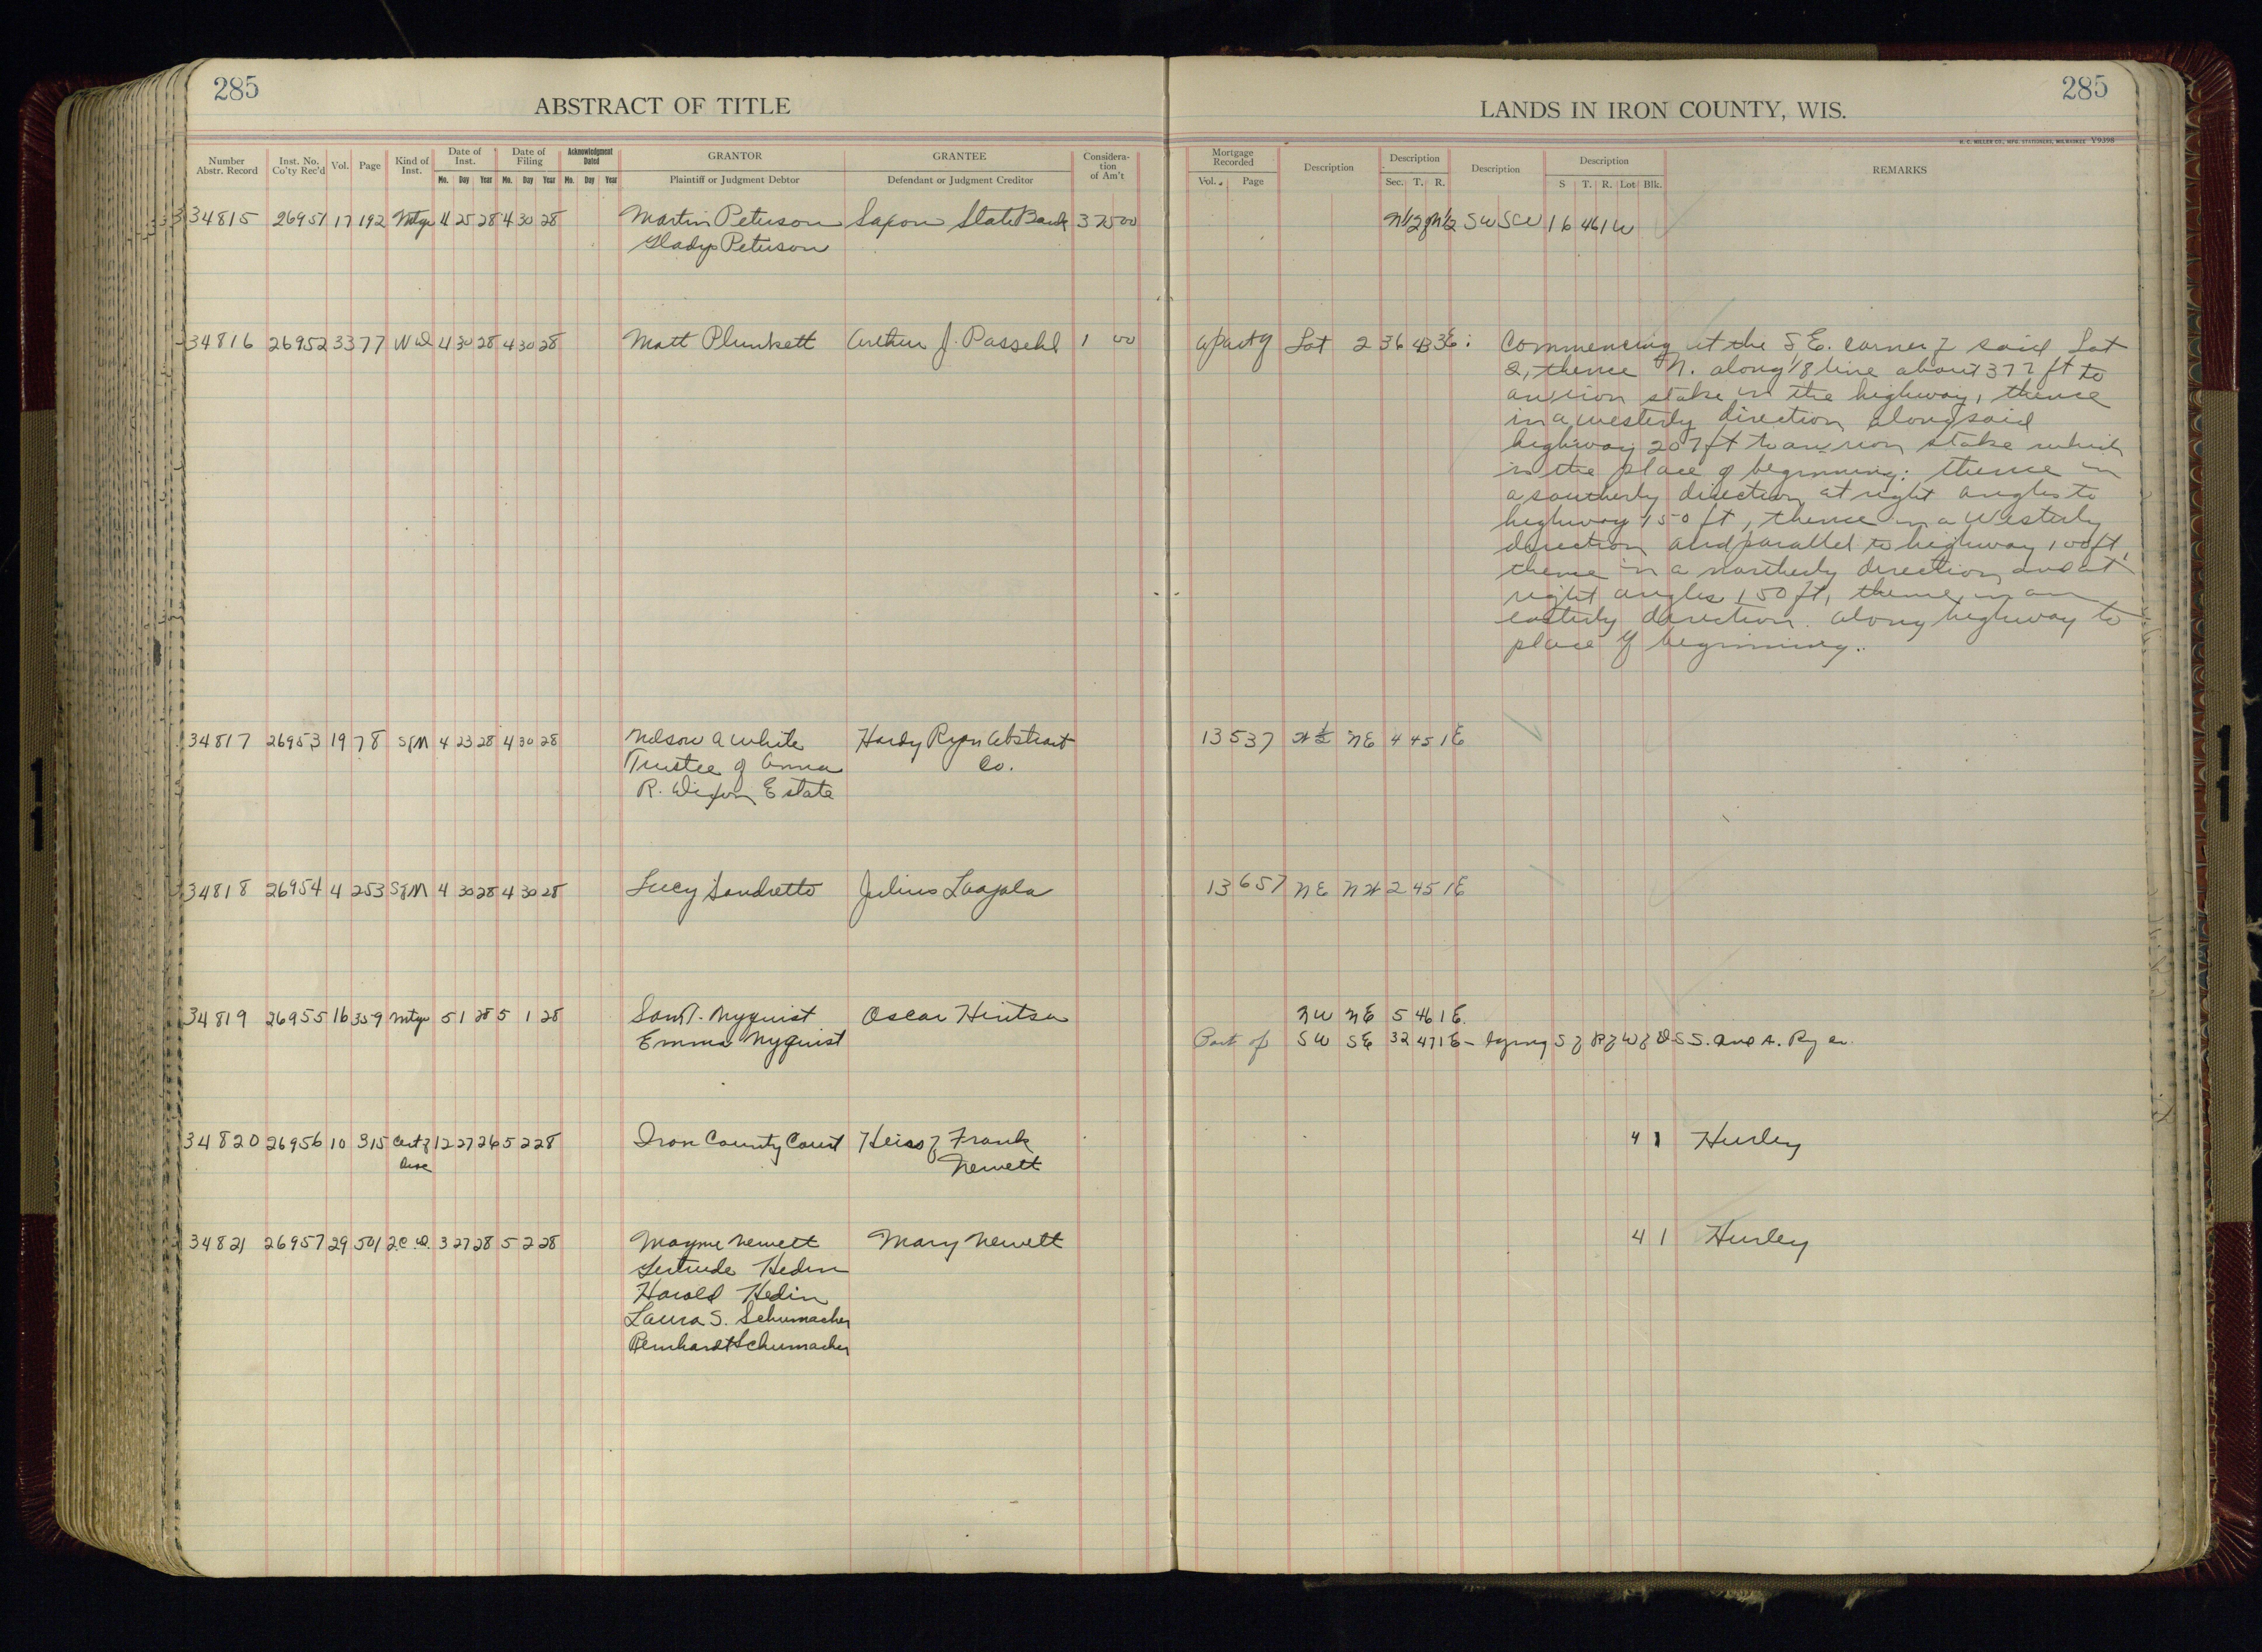 285
285
ABSTRACT OF TITLE
LANDS IN IRON COUNTY, WIS.
H. C. MILLER CO., MFG. STATIONERS, MILWAUKEE V9398
Number Abstr. Record
Inst. No. Co'ty Rec'd
Vol.
Page
Kind of Inst.
Date of Inst.
Mo. Day Year
Date of Filing
Mo. Day Year
Acknowledgment Dated
Mo. Day Year
GRANTOR
Plaintiff or Judgment Debtor
GRANTEE
Defendant or Judgment Creditor
Considera-
tion
of Am't
Mortgage Recorded
Vol. Page
Description
Description
Sec. T. R.
Description
Description
S T. R. Lot Blk.
REMARKS
34815 26951 17 192 Mtge 4 25 28 4 30 28 Martin Peterson Saxon State Bank 375 00 N1/2 of N1/2 SW SW 16 46 1W
Gladys Peterson
34816 26952 33 77 WD 4 30 28 4 30 28 Matt Plunkett Arthur J. Passehl 1 00 a part of Lot 2 36 43 3E: Commencing at the S.E. corner of said Lot
2, thence N. along 1/8 line about 377 ft to
an iron stake in the highway, thence
in a westerly direction along said
highway 207 ft to an iron stake which
is the place of beginning: thence in
a southerly direction at right angles to
highway 150 ft, thence in a Westerly
direction and parallel to highway 100 ft,
thence in a northerly direction and at
right angles 150 ft, thence in an
easterly direction along highway to
place of beginning.
34817 26953 19 78 SfM 4 23 28 4 30 28 Nelson A White Hardy Ryan Abstract 13 537 W½ NE 4 45 1E
Trustee of Anna Co.
R. Dixon Estate
34818 26954 4 253 SfM 4 30 28 4 30 28 Lucy Sandretto Julius Laajala 13 657 NE NW 2 45 1E
34819 26955 16 359 Mtge 5 1 28 5 1 28 Sam Nyquist Oscar Hintsa NW NE 5 46 1E.
Emma Nyquist Part of SW SE 32 47 1E - lying S of R of W of D S S. and A. Ry Co.
34820 26956 10 315 Cert of 12 27 26 5 2 28 Iron County Court Heirs of Frank 4 1 Hurley
Desc Newett
34821 26957 29 501 2.C.D. 3 27 28 5 2 28 Mayme Newett Mary Newett 4 1 Hurley
Gertrude Hedin
Harold Hedin
Laura S. Schumacher
Reinhardt Schumacher